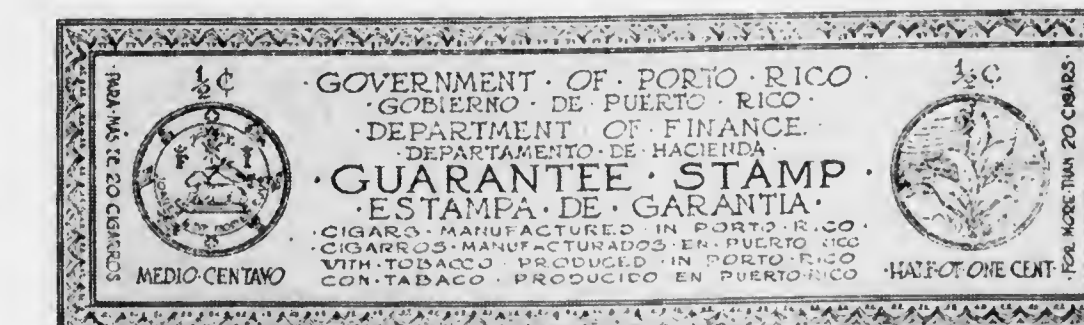 PARA · MAS DE 20 CIGARROS
½ ¢
MEDIO · CENTAVO
· GOVERNMENT · OF · PORTO · RICO ·
· GOBIERNO · DE · PUERTO · RICO ·
· DEPARTMENT · OF · FINANCE ·
· DEPARTAMENTO · DE · HACIENDA ·
· GUARANTEE · STAMP ·
· ESTAMPA · DE · GARANTIA ·
· CIGARS · MANUFACTURED · IN · PORTO · RICO ·
· CIGARROS · MANUFACTURADOS · EN · PUERTO RICO
WITH · TOBACCO · PRODUCED · IN · PORTO · RICO
CON · TABACO · PRODUCIDO EN PUERTO · RICO
½ ¢
· HALF · OF · ONE CENT ·
FOR MORE THAN 20 CIGARS ·